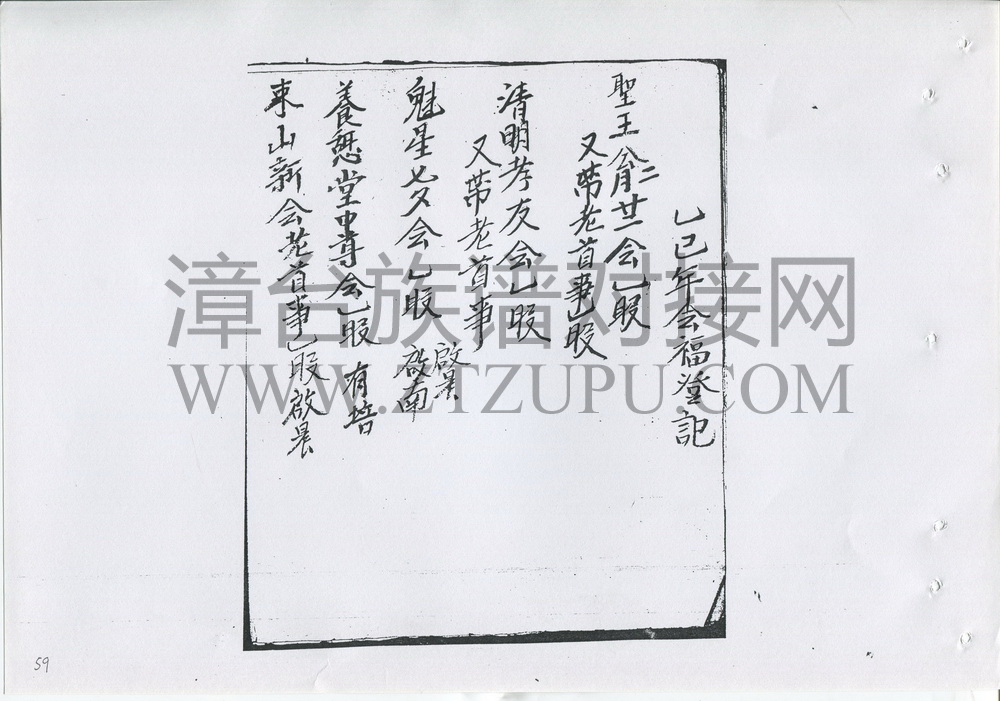 乙巳年会福登记
聖王八月廿二会乚股
又带老首事乚股
清明孝友会乚股
又带老首事
魁星七夕会乚股 啟景 啟南
養愁堂中尊会乚股 有培
東山新会老首事乚股 啟晨
漳台族谱对接网
WWW.ZTZUPU.COM
59